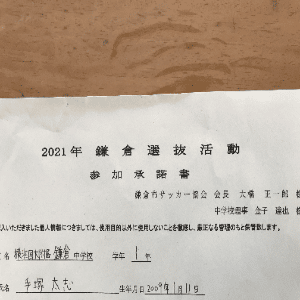 2021年 鎌倉選抜活動
参加承諾書
鎌倉市サッカー協会 会長 大場 正一郎 様
中学校理事 金子 達也 様
入いただきました個人情報につきましては、使用目的以外に使用しないことを徹底し、厳正なる管理のもと保管致します。
名 横浜国大附属鎌倉中学校 学年 1年
氏名 手塚 太志 生年月日2009年1月11日